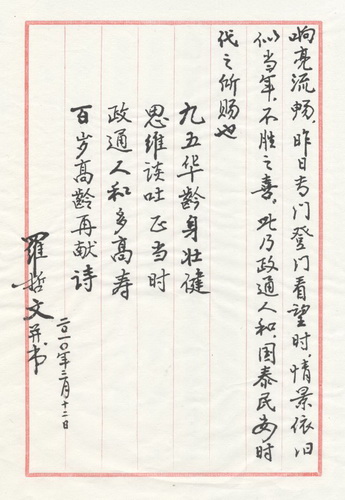 响亮流畅，昨日专门登门看望时，情景依旧
似当年，不胜之喜。此乃政通人和，国泰民安时
代之所赐也
九五华龄身壮健
思维谈吐正当时
政通人和多高寿
百岁高龄再献诗
羅哲文并书
二〇一〇年三月十二日